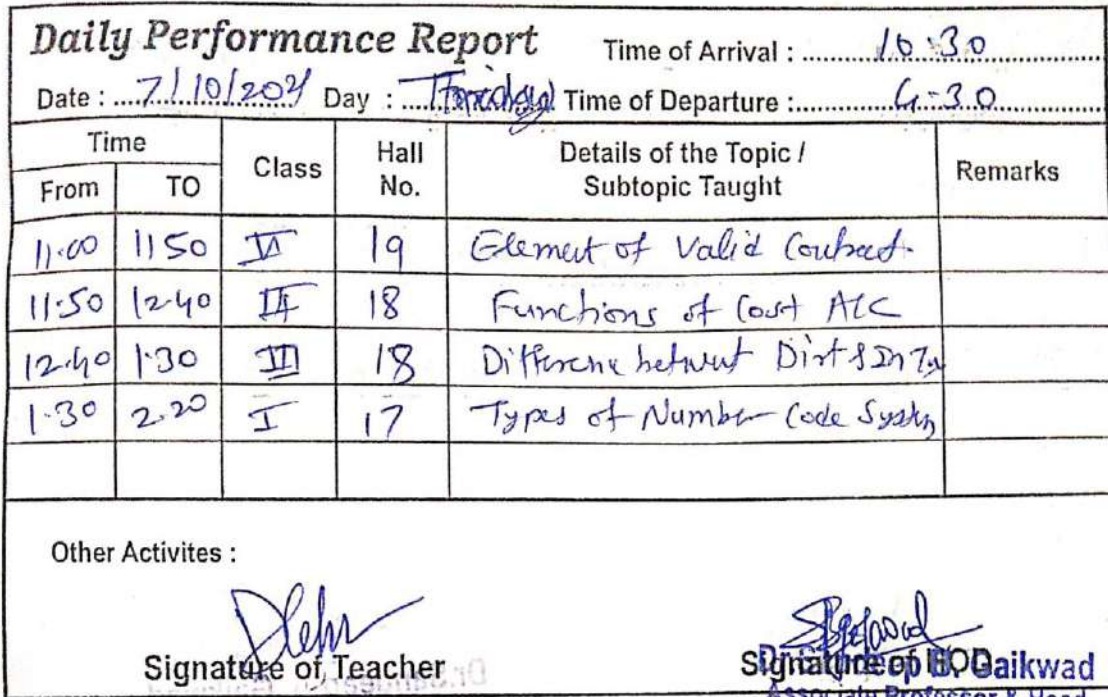 Daily Performance Report Time of Arrival : 10.30
Date : 7/10/2021 Day : Time of Departure : 4-30
Time Class Hall No. Details of the Topic / Subtopic Taught Remarks
From TO
11.00 1150 19 Element of Valid Contract
11.50 12-40 II 18 Functions of Cost A/C
12.40 1.30 III 18 Difference between & In
1.30 2.20 I 17 Types of Number Code System
Other Activites :
Signature of Teacher Signature of HOD
Gaikwad
Associate Professor & Head